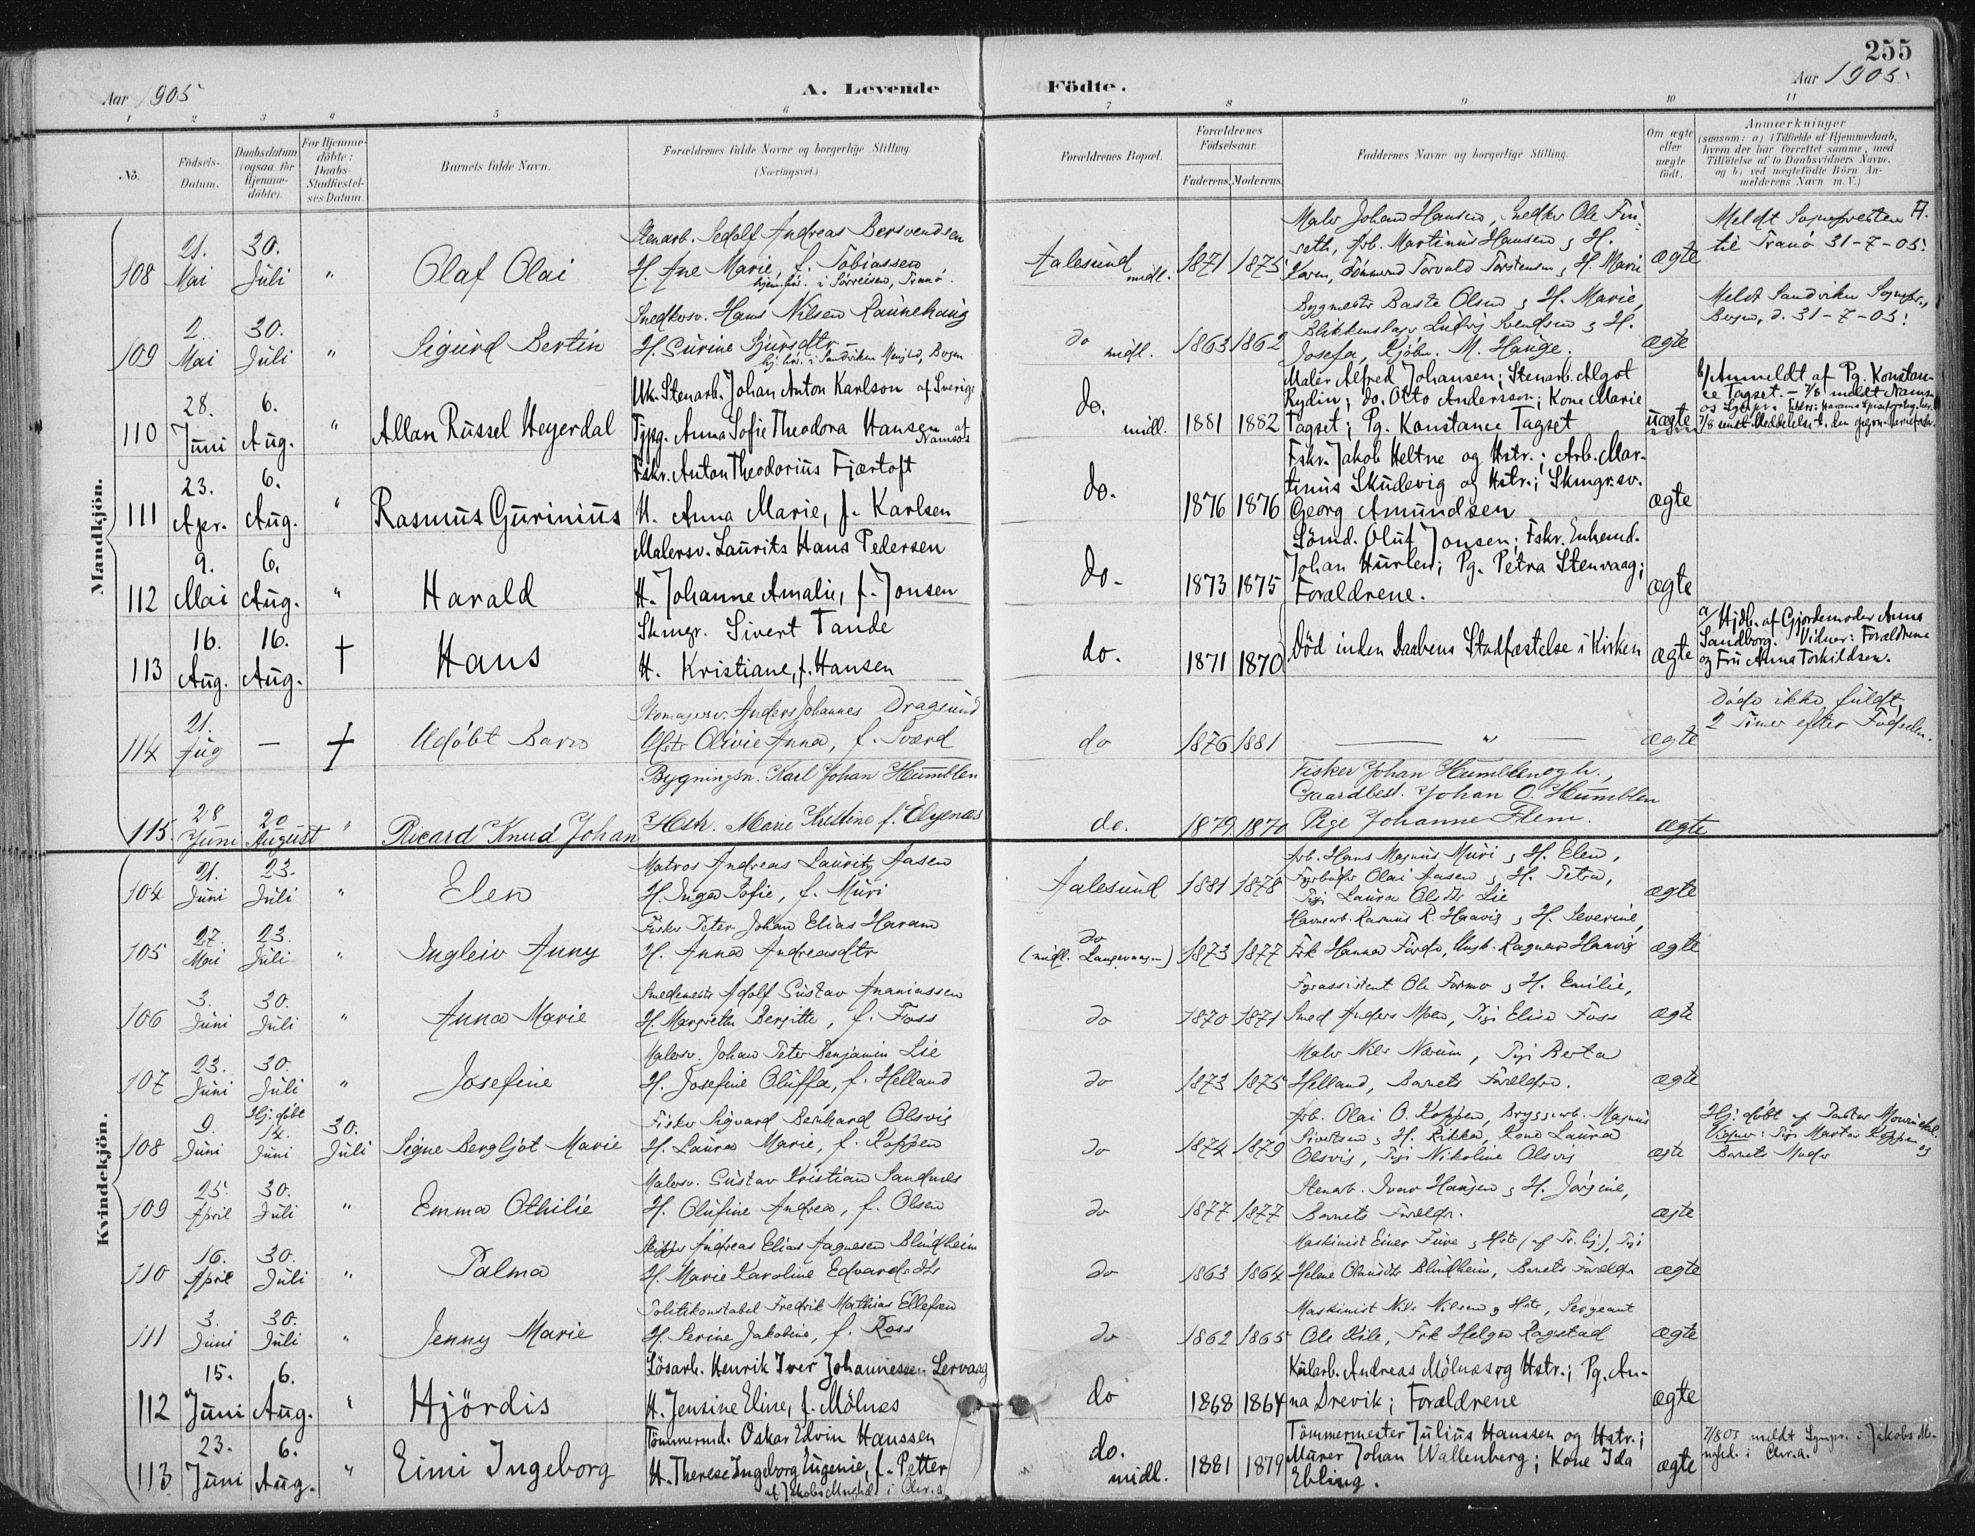 255
Aar 1905
A. Levende Födte.
Aar 1905.
1 2 3 4 5 6 7 8 9 10 11
No.
Födsels-Datum.
Daabsdatum (ogsaa for Hjemme-döbte).
For Hjemme-döbte: Daabs-Stadfæstel-ses Datum.
Barnets fulde Navn.
Forældrenes fulde Navne og borgerlige Stilling.
(Næringsvei.)
Forældrenes Bopæl.
Forældrenes Födselsaar.
Faderens. Moderens.
Faddernes Navne og borgerlige Stilling.
Om ægte eller uægte födt.
Anmærkninger
(saasom: a) i Tilfælde af Hjemmedaab, hvem der har forrettet samme, med Tilföielse af to Daabsvidners Navne, og b) ved uægtefödte Börn An-melderens Navn m. V.)
Mandkjön.
108 21. Mai 30. Juli " Olaf Olai
Stenarb. Sedolf Andreas Bersvendsen
H. Ane Marie, f. Tobiassen
hjemhør. i Sørreisen, Tranø.
Aalesund midl. 1871 1875
Maler Johan Hansen, Snedker Ole Fin-
seth, Arb. Martinus Hansen & H.
Karen, Tømmerm Torvald Torstensen & H. Marie
ægte
Meldt Sognepresten
til Tranø 31-7-05.
109 2. Mai 30. Juli " Sigurd Bertin
Snedkersv. Hans Nilsen Raunehaug
H. Surine Sjursdtr
hj.hør. i Sandviken Menighed, Bergen
do midl. 1863 1862
Bygmester Baste Olsen & H. Marie,
Blikkenslager Ludvig Svendsen & H.
Josefa, Kjøbm. M. Hauge.
ægte
Meldt Sandviken Sognepr.,
Bergen, d. 31-7-05.
110 28. Juni 6. Aug. " Allan Russel Heyerdal
Uk. Stenarb. Johan Anton Karlson af Sverige
Tjpg. Anna Sofie Theodora Hansen af Namsos
do. midl. 1881 1882
Maler Alfred Johansen; Stenarb. Algot
Rydin; do. Otto Andersson; Kone Marie
Tagset; Pg. Konstance Tagset
uægte
b/ Anmeldt af Pg. Konstan-
ce Tagset. - 7/8 meldt Namsos Sognepr.
111 23. Apr. 6. Aug. " Rasmus Gurinius
Fskr. Anton Theodorius Fjærtoft
H. Anna Marie, f. Karlsen
do. 1876 1876
Fskr. Jakob Heltne og Hstr.; Arb. Mar-
tinus Skudevig og Hstr.; Skmgr.sv.
Georg Amundsen
ægte
112 9. Mai 6. Aug. " Harald
Malersv. Laurits Hans Pedersen
H. Johanne Amalie, f. Jonsen
do. 1873 1875
Sömd. Oluf Jonsen; Fskr. Enkemd.
Johan Hurlen; Pg. Petra Stenvaag;
Forældrene.
ægte
113 16. Aug. 16. Aug. † Hans
Skmgr. Sivert Tande
H. Kristiane, f. Hansen
do. 1871 1870
Död inden Daabens Stadfæstelse i Kirken
ægte
a/ Hjdb. af Gjordemoder Anna
Sandborg. Vidner: Forældrene
og Fru Anna Torkildsen.
114 21. Aug — † Udöbt Barn
Skomagersv. Anders Johannes Dragsund
Hstr Olivie Anna, f. Sværd
do 1876 1881
— " —
ægte
Døde ikke fuldt
2 Timer efter Fødselen.
115. 28 Juni 20 August " Ricard Knud Johan
Bygningsn. Karl Johan Humblen
Hstr. Marie Kristine f. Elgenæs
do. 1879. 1870
Fisker Johan Humblen og h.,
Gaardbest. Johan O. Humblen
Pige Johanne Flem.
ægte
Kvindekjön.
104 21. Juni 23. Juli " Elen
Matros Andreas Lauritz Aasen
H. Inga Sofie, f. Muri
Aalesund 1881 1878
Arb. Hans Magnus Muri & H. Elen,
Fyrbøder Olai Aasen & H. Petra,
Pigi Laura Olsdtr Lie
ægte
105 27. Mai 23. Juli " Ingleiv Anny
Fisker Peter Johan Elias Haram
H. Anna Andreasdtr
do (midl. Langevaagen) 1873 1877
Havnearb. Rasmus R. Haavig & H. Severine,
Frk Hanna Førde, Ungk. Ragnar Haavig
ægte
106 3. Juni 30. Juli " Anna Marie
Smedemester Adolf Gustav Ananiassen
H. Margrethe Bergitte, f. Foss
do 1870 1871
Fyrassistent Ole Formo & H. Emilie,
Smed Anders Moen, Pigi Elise Foss
ægte
107 23. Juni 30. Juli " Josefine
Malersv. Johan Peter Benjamin Lie
H. Josefine Oluffa, f. Helland
do 1873 1875
Maler Nils Nærum, Pigi Berta
Helland, Barnets Forældre.
ægte
108 9. Juni Hj. døbt 14. Juni 30. Juli Signe Bergljot Marie
Fisker Sigvard Bernhard Olsvig
H. Laura Marie, f. Koppen
do 1874 1879
Arb. Olai O. Koppen, Bryggearb. Magnus
Sivertsen & H. Rikka, Kone Laura
Olsvig, Pigi Nikoline Olsvig
ægte
Hj. døbt af Pastor
Vidner: Pigi Marta Koppen og
Barnets Moder
109 25. April 30. Juli " Emma Othilie
Malersv. Gustav Kristian Sandnes
H. Olufine Andrea, f. Olsen
do 1877 1877
Stenarb. Ivar Hansen & H. Jørgine,
Barnets Forældre.
ægte
110 16. April 30. Juli " Palma
Skipper Andreas Elias Aagnesen Blindheim
H. Marie Karoline Edvardsdtr
do 1863 1864
Maskinist Einer Fure & Hstr (af Fr. lig.), Pigi
Helene Olausdtr Blindheim, Barnets Forældre
ægte
111 3. Juni 30. Juli " Jenny Marie
Politikonstabel Fredrik Mathias Ellefsen
H. Serine Jakobine, f. Ross
do 1862 1865
Maskinist Nils Nilsen & Hstr, Sergeant
Ole Kile, Frk Helga Ragstad
ægte
112 15. Juni 6. Aug. " Hjördis
Lösarb. Henrik Iver Johannessen Lervaag
H. Jensine Eline, f. Mölnæs
do 1868 1864
Kularb. Andreas Mölnæs og Hstr.; Pg. An-
na Drevik; Forældrene
ægte
113 23. Juni 6. Aug. " Eimi Ingeborg
Tömmermd. Oskar Edvin Hanssen
H. Therese Ingeborg Eugenie, f. Petter
af Jakobs Mnghd. i Chr.a
do. midl. 1881 1879
Tömmermester Julius Hanssen og Hstr.;
Murer Johan Wallenberg; Kone Ida
Ebling.
ægte
7/8 05 meldt Sognpr. i Jakobs Me-
nighd. i Chr.a.